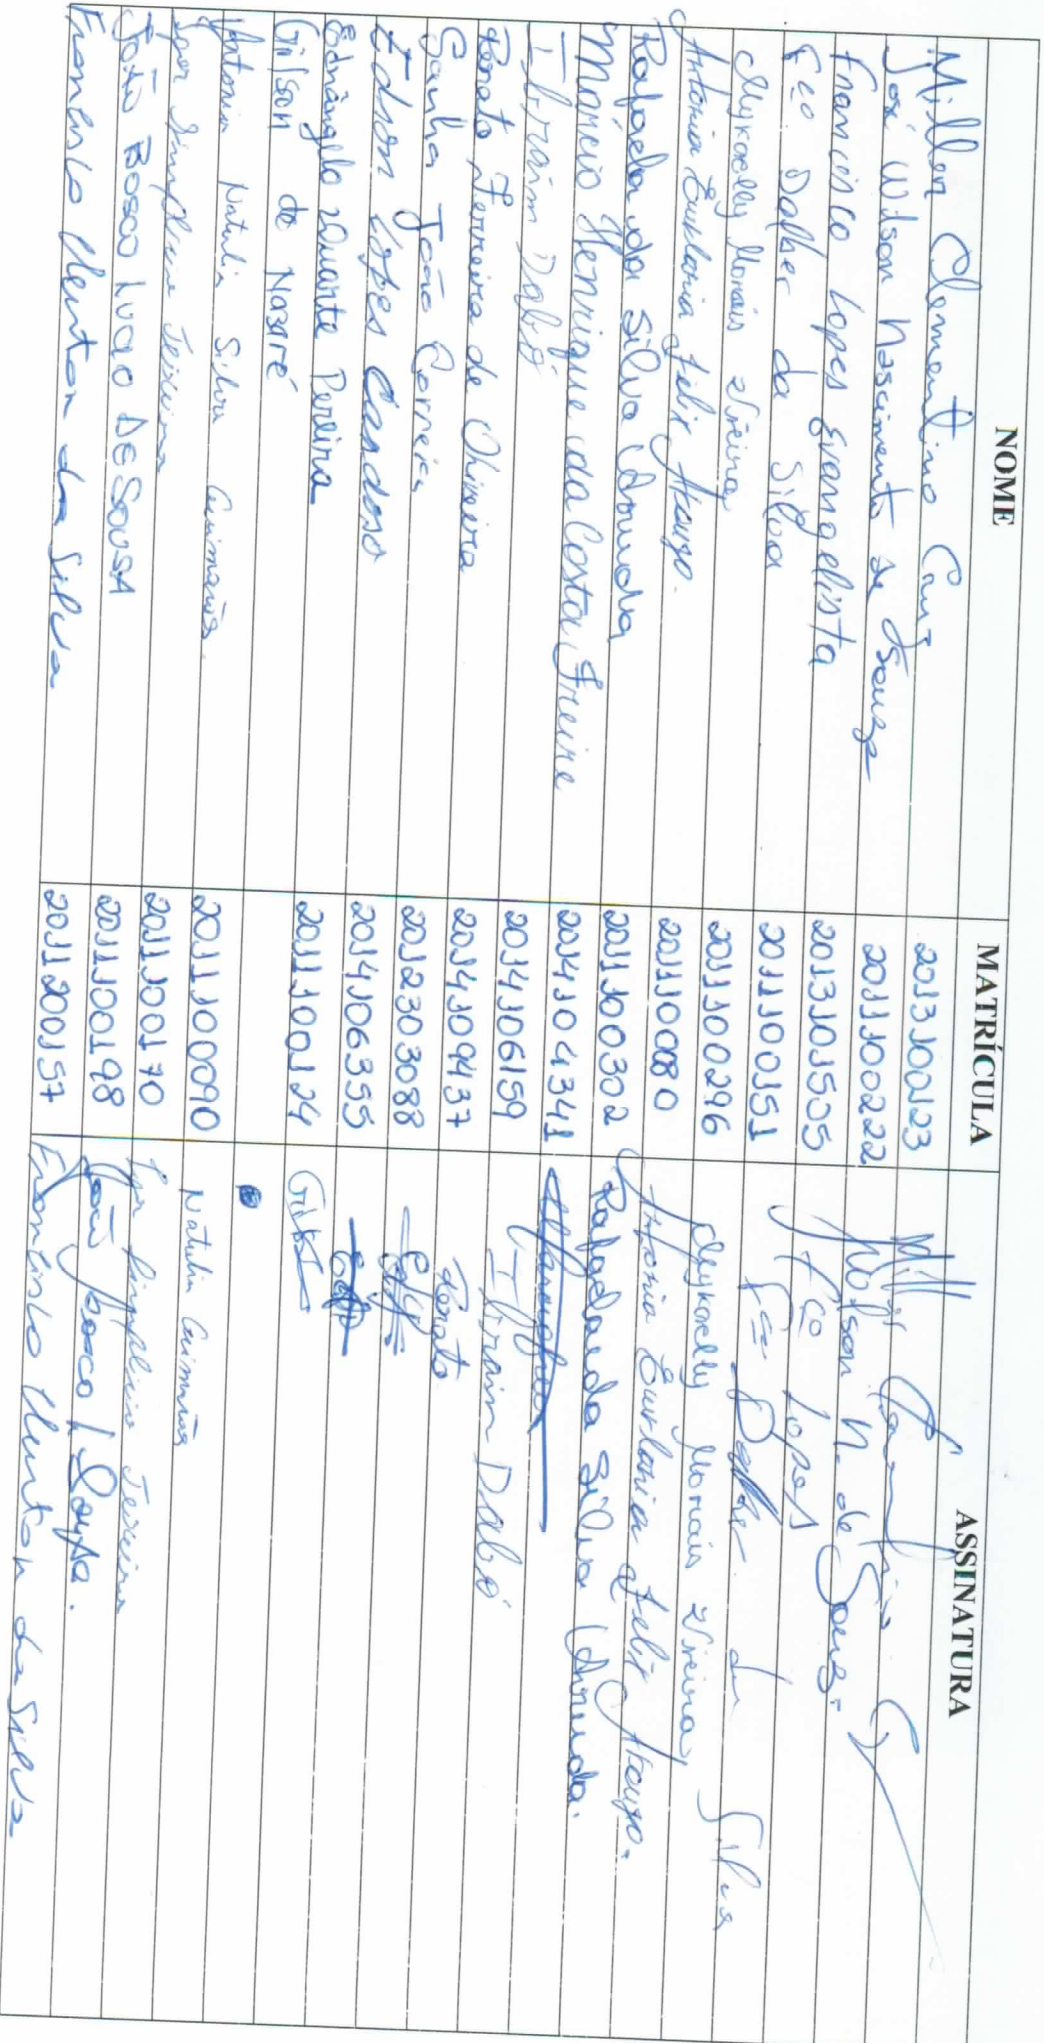 NOME MATRÍCULA ASSINATURA
Miller Clementino Cruz 2013100123
José Wilson Nascimento de Souza 2011100222 Wilson N. de Souza
Francisco Lopes Evangelista 2013101505 Fco Lopes
Fco Dalher da Silva 2011100151 Fco Dalher da Silva
Meykaelly Morais Vieira 2011100296 Meykaelly Morais Vieira
Antonia Euclania Felix Araujo. 2011100080 Antonia Euclania Felix Araujo.
Rafaela da Silva Arruda 2011100302 Rafaela da Silva Arruda.
Márcio Henrique da Costa Freire 2014104341
Ibraim Dabó 2014106159 Ibraim Dabó
Renato Ferreira de Oliveira 2014109437 Renato
Sanha João Correia 2012303088
Edson Lopes Cardoso 2014106355
Ednângelo Duarte Pereira
Gilson de Nazaré 2011100124
Antonia Natalia Silva Guimarães. 2011100090 Natalia Guimarães
Igor Simplicio Teixeira 2011100170 Igor Simplicio Teixeira
João Bosco Lucio DE SouSA 2011100198 João Bosco L Sousa.
Francisco Cleuton da Silva 2011200157 Francisco Cleuton da Silva